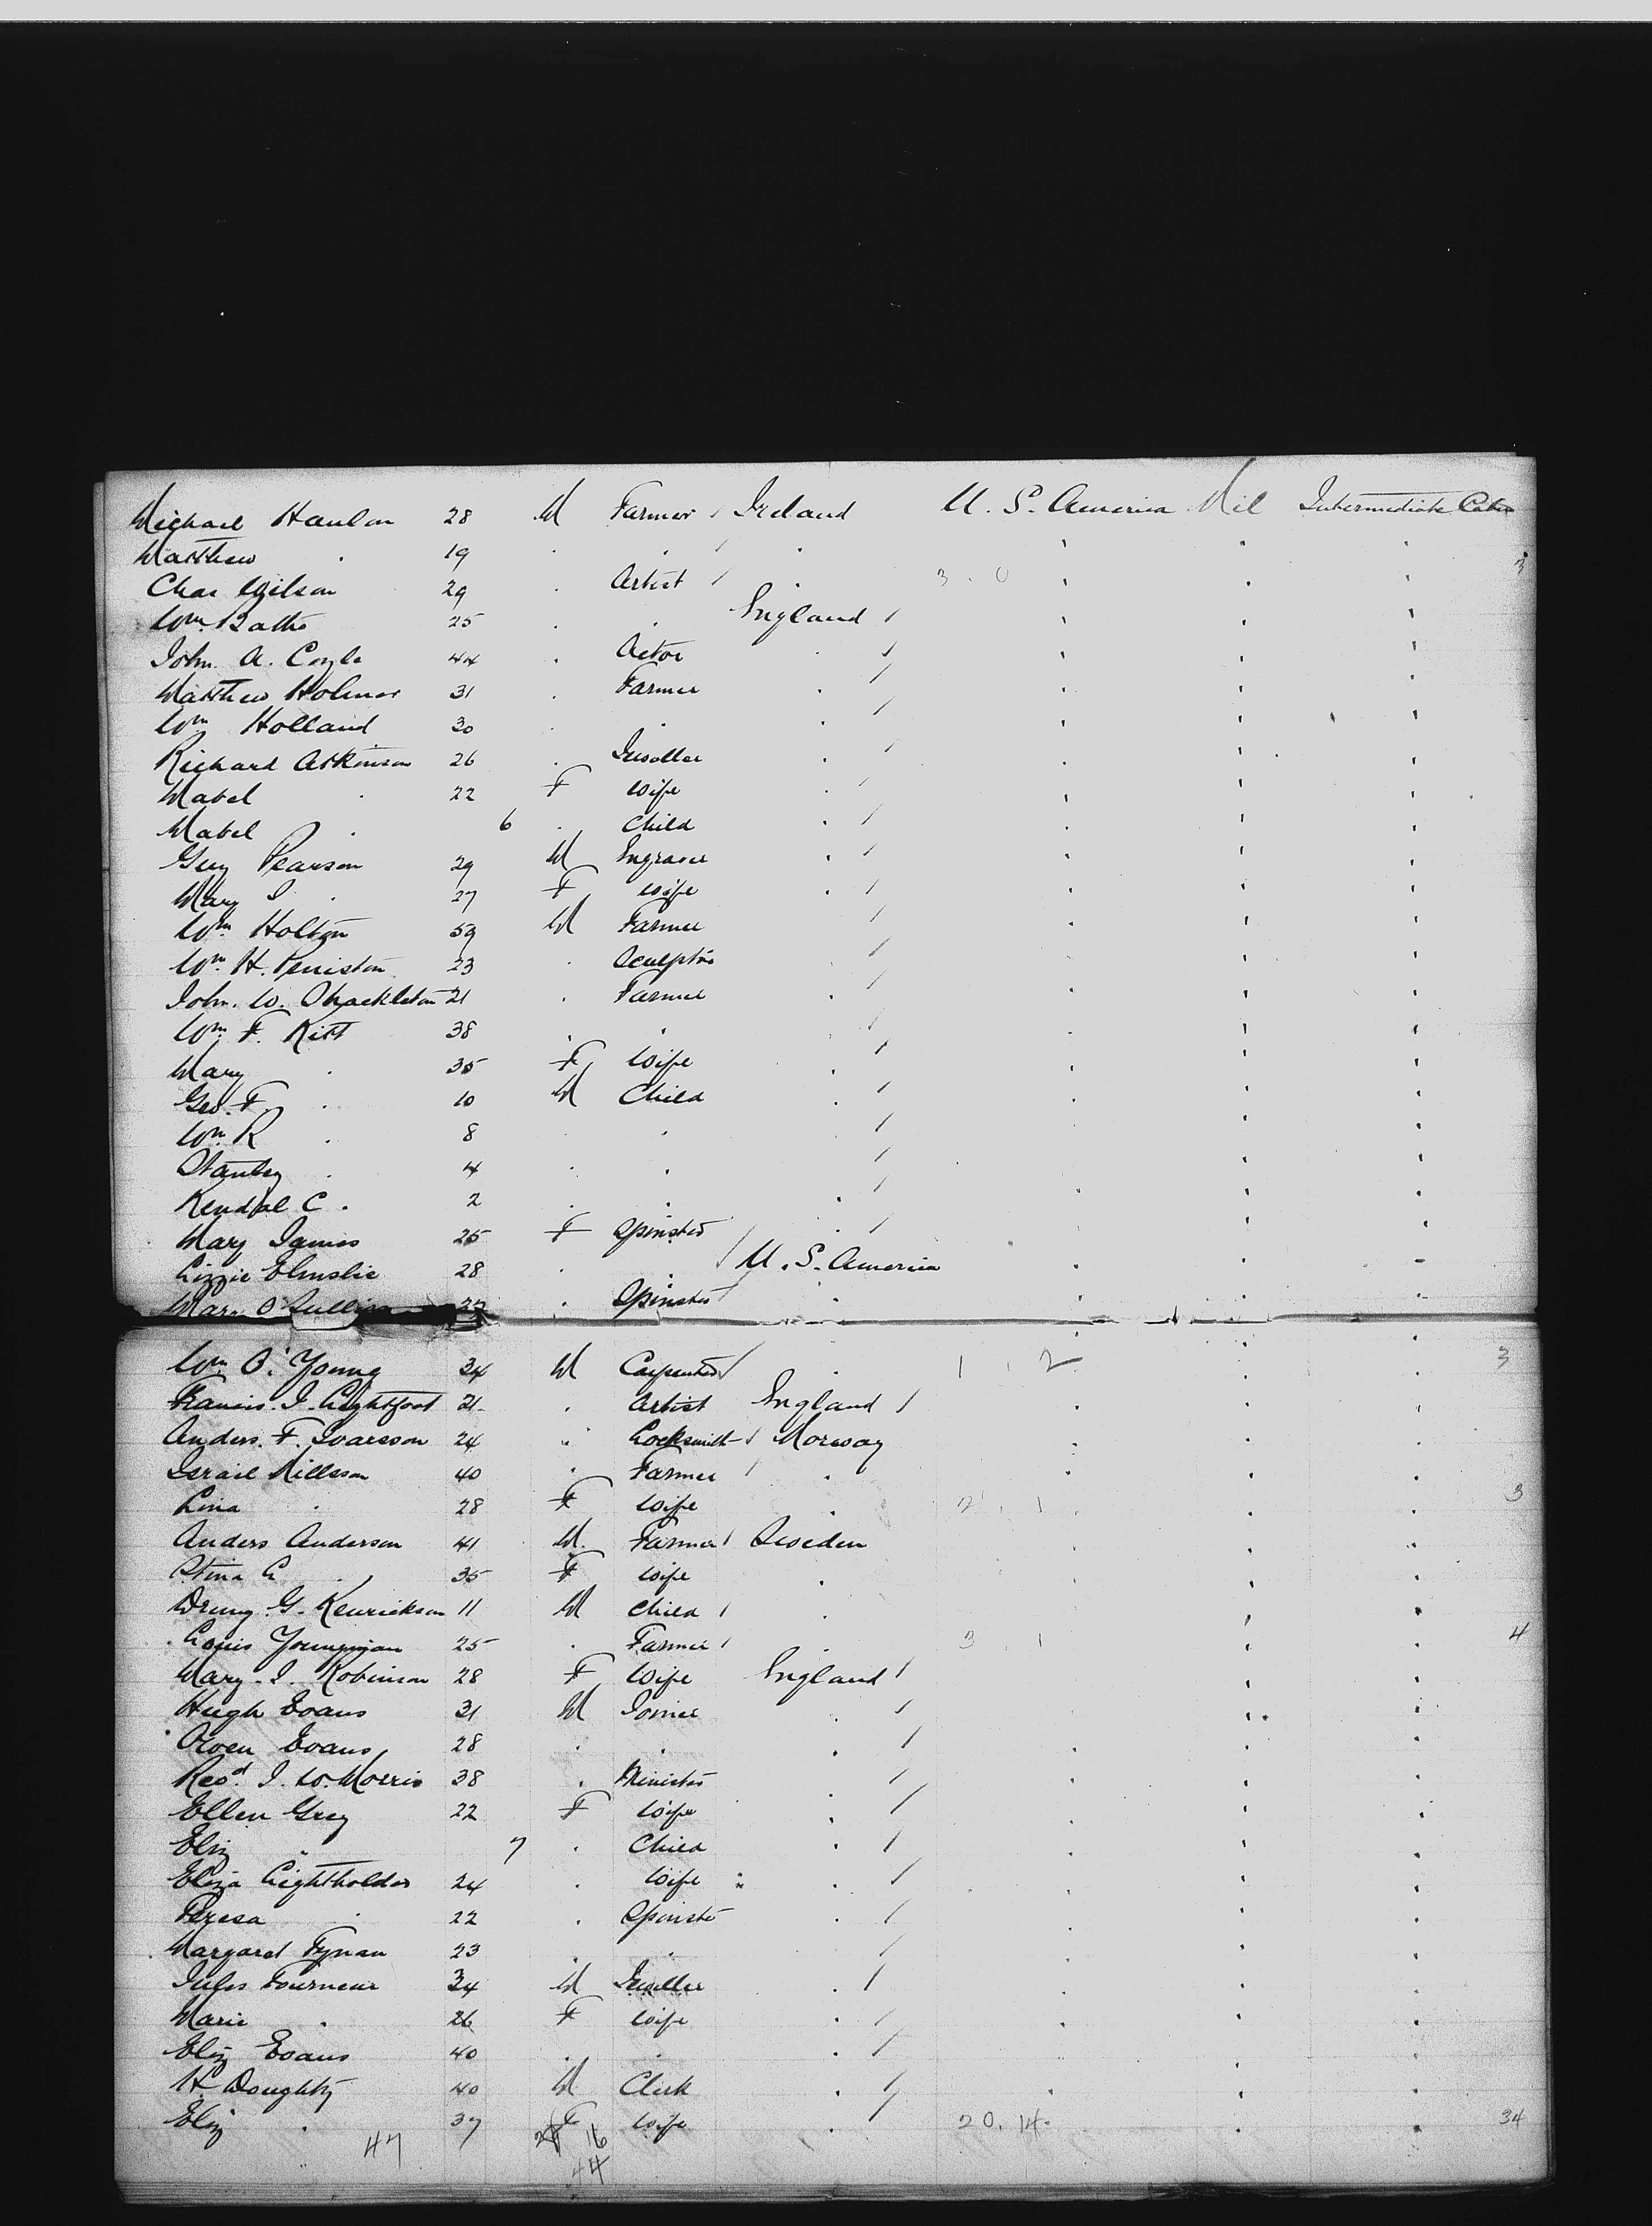 Michael Hanlon 28 M Farmer Ireland U. S. America Nil Intermediate Cabin
Matthew . 19 . . . ' ' ' 3
Chas Wilson 29 . Artist . 3 . 0
Wm. Batho 25 . . England
John A. Coyle 44 . Actor .
Matthew Holmes 31 . Farmer .
Wm Holland 30 . . .
Richard Atkinson 26 . Jeweller .
Mabel . 22 F Wife .
Mabel . 6 . Child .
Guy Pearson 29 M Engraver .
Mary J . 27 F Wife .
Wm Holton 59 M Farmer
Wm. H. Peniston 23 . Sculptor
John. W. Shackleton 21 . Farmer .
Wm. F. Kitt 38 . .
Mary . 35 F Wife .
Geo. F. . 10 M Child .
Wm. R . 8 . .
Stanley . 4 . .
Kendal C . 2 . . .
Mary James 25 F Spinster .
Lizzie Elmslie 28 . . U. S. America
Mary O'Sullivan . Spinster .
Wm. O. Young 34 M Carpenter . 1 . 2 3
Francis. J. Lightfoot 21 . Artist England
Anders. F. Ivarsson 24 " Locksmith Norway
Israel Nillsson 40 . Farmer .
Lina . 28 F Wife . 2 . 1 3
Anders Anderson 41 M. Farmer Sweden
Stina C . 35 F Wife .
G. Kenrickson 11 M Child .
Louis Youngman 25 . Farmer . 3 . 1 4
Mary. J. Robinson 28 F Wife England
Hugh Evans 31 M Joiner .
Owen Evans 28 . . .
Revd. J. W. Morris 38 . Minister .
Ellen Grey 22 F Wife .
Eliz " 7 . Child .
Eliza Lightholder 24 . Wife .
Teresa . 22 . Spinster .
Margaret Fynan 23 . .
Jules Fourneur 34 M Jeweller .
Marie . 26 F Wife .
Eliz Evans 40 . . .
H. Doughty 40 M Clerk .
Eliz . 37 F Wife . 20. 14. 34
47 16
44